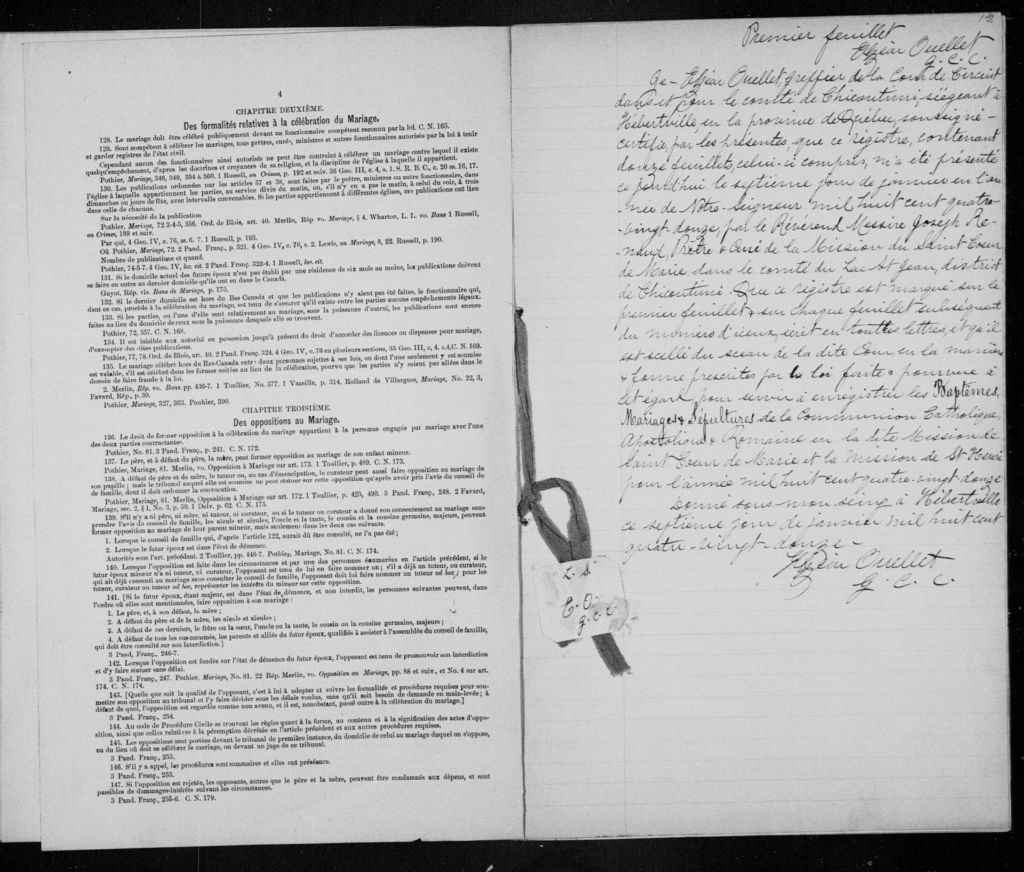 4
CHAPITRE DEUXIÈME.
Des formalités relatives à la célébration du Mariage.
128. Le mariage doit être célébré publiquement devant un fonctionnaire compétent reconnu par la loi. C. N. 165.
129. Sont compétents à célébrer les mariages, tous prêtres, curés, ministres et autres fonctionnaires autorisés par la loi à tenir
et garder registres de l'état civil.
Cependant aucun des fonctionnaires ainsi autorisés ne peut être contraint à célébrer un mariage contre lequel il existe
quelqu'empêchement, d'après les doctrines et croyances de sa religion, et la discipline de l'église à laquelle il appartient.
Pothier, Mariage, 346, 349, 354 à 360. 1 Russell, on Crimes, p. 192 et suiv. 36 Geo. III, c. 4, s. 1. S. R. B. C., c. 20 ss. 16, 17.
130. Les publications ordonnées par les articles 57 et 58, sont faites par le prêtre, ministres ou autre fonctionnaire, dans
l'église à laquelle appartiennent les parties, au service divin du matin, ou, s'il n'y en a pas le matin, à celui du soir, à trois
dimanches ou jours de fête, avec intervalle convenables. Si les parties appartiennent à différentes églises, ces publications ont lieu
dans celle de chacune.
Sur la nécessité de la publication
Pothier, Mariage, 72 3-4-5, 356. Ord. de Blois, art. 40. Merlin, Rép vo. Mariage, § 4. Wharton, L. L. vo. Bans 1 Russell,
on Crimes, 189 et suiv.
Par qui, 4 Geo. IV, c. 76, ss. 6. 7. 1 Russell, p. 193.
Où Pothier, Mariage, 72. 2 Pand. Franç., p. 321. 4 Geo. IV, c. 76, s. 2. Lewis, on Mariage, 8, 22. Russell, p. 190.
Nombre de publications et quand.
Pothier, 74-5-7. 4 Geo. IV, loc. cit. 2 Pand. Franç. 322-4. 1 Russell, loc. cit.
131. Si le domicile actuel des futurs époux n'est pas établi par une résidence de six mois au moins, les publications doivent
se faire en outre au dernier domicile qu'ils ont eu dans le Canada.
Guyot, Rép. vis. Bans de Mariage, p. 175.
132. Si le dernier domicile est hors du Bas Canada et que les publications n'y aient pas été faites, le fonctionnaire qui,
dans ce cas, procède à la célébration du mariage, est tenu de s'assurer qu'il existe entre les parties aucuns empêchements légaux.
133. Si les parties, ou l'une d'elles sont relativement au mariage, sous la puissance d'autrui, les publications sont encore
faites au lieu du domicile de ceux sous la puissance desquels elle se trouvent.
Pothier, 72, 357. C. N. 168.
134. Il est loisible aux autorité en possession jusqu'à présent du droit d'accorder des licences ou dispenses pour mariage,
d'exempter des dites publications.
Pothier, 77, 78. Ord. de Blois, art. 40. 2 Pand. Franç. 324. 4 Geo. IV, c. 76 en plusieurs sections, 35 Geo. III, c. 4, s. 4, C. N. 169.
135. Le mariage célébré hors du Bas-Canada entre deux personnes sujettes à ses lois, ou dont l'une seulement y est soumise
est valable, s'il est célébré dans les formes usitées au lieu de la célébration, pourvu que les parties n'y soient pas allées dans le
dessein de faire fraude à la loi.
2. Merlin, Rép. vo. Bans, pp. 436-7. 1 Toullier, No. 577. 1 Vazeille, p. 314. Rolland de Villargues, Mariage, No. 22, 3,
Favard, Rép., p. 30.
Pothier, Mariage, 327, 363. Pouhier, 390.
CHAPITRE TROISIÈME.
Des oppositions au Mariage.
136. Le droit de former opposition à la célébration du mariage appartient à la personne engagée par mariage avec l'une
des deux parties contractantes.
Pothier, No. 81. 3 Pand. Franç., p. 241. C. N. 172.
137. Le père, et à défaut du père, la mère, peut former opposition au mariage de son enfant mineur.
Pothier, Mariage, 81. Merlin, vo. Opposition à Mariage sur art. 173. 1 Toullier, p. 489. C. N. 173.
138. A défaut de père et de mère, le tuteur ou, au cas d'émancipation, le curateur peut aussi faire opposition au mariage de
son pupille ; mais le tribunal auquel elle est soumise ne peut statuer sur cette opposition qu'après avoir pris l'avis du conseil de
famille, dont il doit ordonner la convocation.
Pothier, Mariage, 81. Merlin, Opposition à Mariage sur art. 172. 1 Toullier, p. 425, 490. 3 Pand. Franç., 248. 2 Favard,
Mariage, sec. 2, § 1, No. 3, p. 59. 1 Delv. p. 62. C. N. 175.
139. S'il n'y a ni père, ni mère, ni tuteur, ni curateur, ou si le tuteur ou curateur a donné son consentement au mariage sans
prendre l'avis du conseil de famille, les aïeuls et aïeules, l'oncle et la tante, le cousin et la cousine germains, majeurs, peuvent
former opposition au mariage de leur parent mineur, mais seulement dans les deux cas suivants.
1. Lorsque le conseil de famille qui, d'après l'article 122, aurait dû être consulté, ne l'a pas été ;
2. Lorsque le futur époux est dans l'état de démence.
Autorités sous l'art. précédent. 2 Toullier, pp. 446-7. Pothier, Mariage, No. 81. C. N. 174.
140. Lorsque l'opposition est faite dans les circonstances et par une des personnes énumérées en l'article précédent, si le
futur époux mineur n'a ni tuteur, ni curateur, l'opposant est tenu de lui en faire nommer un ; s'il a déjà un tuteur, ou curateur,
qui ait déjà consenti au mariage sans consulter le conseil de famille, l'opposant doit lui faire nommer un tuteur ad hoc ; pour les
tuteur, curateur ou tuteur ad hoc, représenter les intérêts du mineur sur cette opposition.
141. [Si le futur époux, étant majeur, est dans l'état de démence, et non interdit, les personnes suivantes peuvent, dans
l'ordre où elles sont mentionnées, faire opposition à son mariage :
1. Le père, et, à son défaut, la mère ;
2. A défaut du père et de la mère, les aïeuls et aïeules ;
3. A défaut de ces derniers, le frère ou la sœur, l'oncle ou la tante, le cousin ou la cousine germains, majeurs ;
4. A défaut de tous les sus-nommés, les parents et alliés du futur époux, qualifiés à assister à l'assemblée du conseil de famille,
qui doit être consulté sur son interdiction.]
3 Pand. Franç., 246-7.
142. Lorsque l'opposition est fondée sur l'état de démence du futur époux, l'opposant est tenu de promouvoir son interdiction
et d'y faire statuer sans délai.
3 Pand. Franç., 247. Pothier, Mariage, No. 81. 22 Rép. Merlin, vo. Opposition au Mariage, pp. 88 et suiv., et No. 4 sur art.
174. C. N. 174.
143. [Quelque que soit la qualité de l'opposant, c'est à lui à adopter et suivre les formalités et procédures requises pour sou-
mettre son opposition au tribunal et l'y faire décider sous les délais voulus, sans qu'il soit besoin de demande en main-levée ; à
défaut de quoi, l'opposition est regardée comme non avenu, et il est, nonobstant, passé outre à la célébration du mariage.]
3 Pand. Franç., 254.
144. Au code de Procédure Civile se trouvent les règles quant à la forme, au contenu et à la signification des actes d'oppo-
sition, ainsi que celles relatives à la péremption décrétée en l'article précédent et aux autres procédures requises.
145. Les oppositions sont portées devant le tribunal de première instance, du domicile de celui au mariage duquel on s'oppose,
ou du lieu où doit se célébrer le mariage, ou devant un juge de ce tribunal.
3 Pand. Franç., 253.
146. S'il y a appel, les procédures sont sommaires et elles ont préséance.
3 Pand. Franç., 253.
147. Si l'opposition est rejetée, les opposants, autres que le père et la mère, peuvent être condamnés aux dépens, et sont
passibles de dommages-intérêts suivant les circonstances.
3 Pand. Franç., 255-6. C. N. 179.
Premier feuillet
Elzéar Ouellet
G. C. C.
Je - Elzéar Ouellet, greffier de la Cour de Circuit
dans et pour le comté de Chicoutimi, siégeant à
Hébertville, en la province de Québec, soussigné
certifie, par les présentes, que ce registre, contenant
douze feuillets, celui-ci compris, m'a été présenté
ce jourd'hui le septième jour de janvier en l'an-
-née de Notre-Seigneur mil huit cent quatre-
-vingt-douze, par le Révérend Messire Joseph Re-
naud, Prêtre & Curé de la Mission du Saint Coeur
de Marie dans le comté du Lac St Jean, district
de Chicoutimi. Que ce registre est marqué sur le
premier feuillet & sur chaque feuillet subséquent
du numéro d'iceux, écrit en toutes lettres, et qu'il
est scellé du sceau de la dite Cour, en la manière
& forme prescrites par la loi faite & pourvue à
cet égard, pour servir à enregistrer les Baptêmes,
Mariages & Sépultures de la Communion Catholique,
Apostolique & Romaine en la dite Mission de
Saint Coeur de Marie et la Mission de St Henri
pour l'année mil huit cent quatre-vingt-douze
Donné sous mon seing à Hébertville
ce septième jour de janvier mil huit cent
quatre-vingt-douze -
Elzéar Ouellet
G. C. C.
L. S
E. O.
g. c. c.